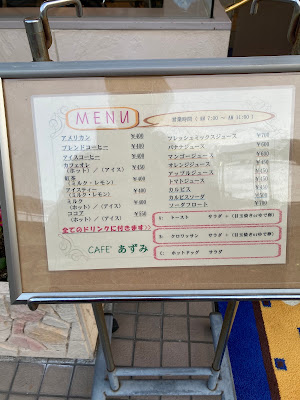 MENU
営業時間 ( AM 7:30 ~ AM 11:00 )
アメリカン ¥400
ブレンドコーヒー ¥400
アイスコーヒー ¥400
カフェオレ
(ホット) / (アイス) ¥450
紅茶
(ミルク・レモン) ¥400
アイスティー
(ミルク・レモン) ¥400
ミルク
(ホット) / (アイス) ¥400
ココア
(ホット) / (アイス) ¥550
全てのドリンクに付きます>>
CAFE' あずみ
フレッシュミックスジュース ¥700
バナナジュース
マンゴージュース
オレンジジュース
アップルジュース
トマトジュース
カルピス
カルピスソーダ
ソーダフロート ¥700
A: トースト サラダ + (目玉焼きorゆで卵)
B: クロワッサン サラダ + (目玉焼きorゆで卵)
C: ホットドッグ サラダ